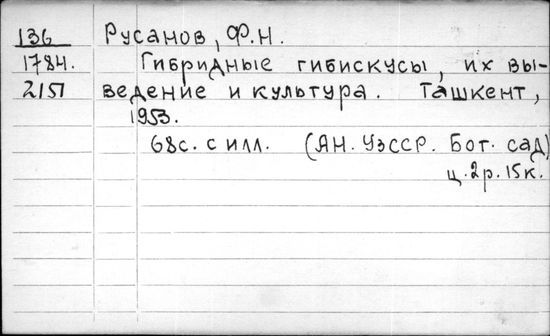 136 Русанов, Ф.Н.
1784. Гибридные гибискусы, их вы-
2151 ведение и культура. Ташкент,
1953.
68с. с илл. (АН. УзССР. Бот. сад)
ц. 2р. 15к.